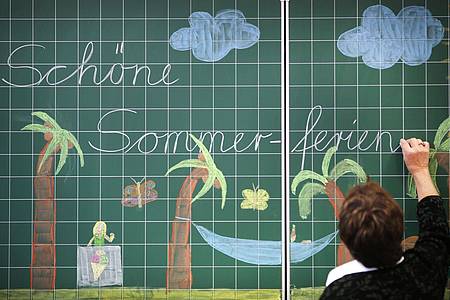 Schöne
Sommer-ferien